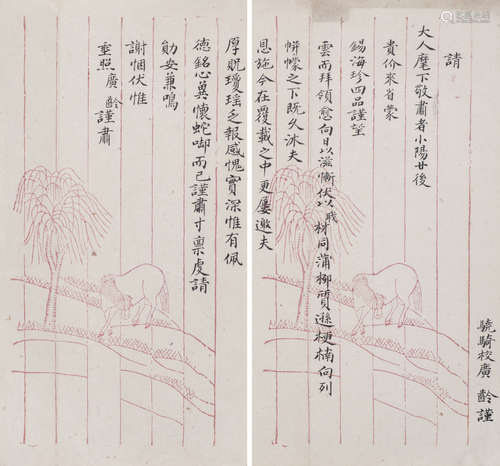 驍騎校廣齡謹
請
大人麾下敬肅者小陽廿後
貴价來省蒙
錫海珍四品謹望
雲而拜領愈向日以滋慚伏以材同蒲柳質遜梗楠向列
帡幪之下既久沐夫
恩施今在覆載之中更屢邀夫
厚貺瓊瑤乏報感愧實深惟有佩
德銘心冀懷蛇啣而已謹肅寸稟虔請
勛安兼鳴
謝悃伏惟
垂照廣齡謹肅